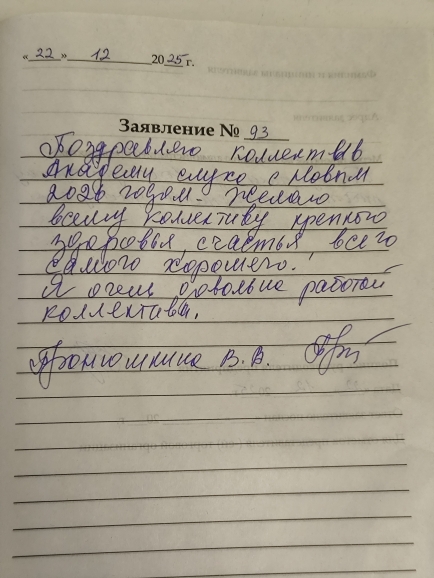 «22» 12 2025 г.
Заявление № 93
Поздравляю коллектив
Академии слуха с Новым
2026 годом. Желаю
всему коллективу крепкого
здоровья, счастья, всего
самого хорошего!
Я очень довольна работой
коллектива.
В. В.